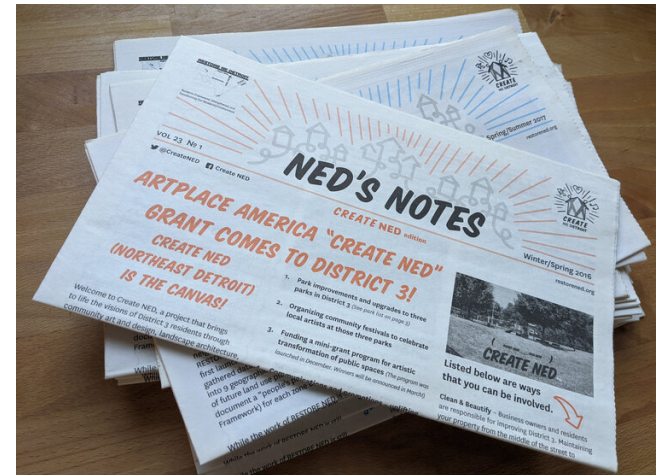 RESTORE NE DETROIT
Spring/Summer 2017
restorened.org
CREATE
VOL 23 Nº 1
@CreateNED Create NED
NED'S NOTES
CREATE NED edition
CREATE
NE DETROIT
Winter/Spring 2016
restorened.org
ARTPLACE AMERICA "CREATE NED"
GRANT COMES TO DISTRICT 3!
CREATE NED
(NORTHEAST DETROIT)
IS THE CANVAS!
Welcome to Create NED, a project that brings
to life the visions of District 3 residents through
community art and design, landscape architecture,
1. Park improvements and upgrades to three
parks in District 3 (see park list on page 3)
2. Organizing community festivals to celebrate
local artists at those three parks
3. Funding a mini-grant program for artistic
transformation of public spaces (The program was
launched in December. Winners will be announced in March)
CREATE NED
Listed below are ways
that you can be involved.
Clean & Beautify – Business owners and residents
are responsible for improving District 3. Maintaining
your property from the middle of the street to
first
gathered
into 9 geographic
of future land use
document a "people's
Framework) for each zone
While the work of RESTORE NED is still
While